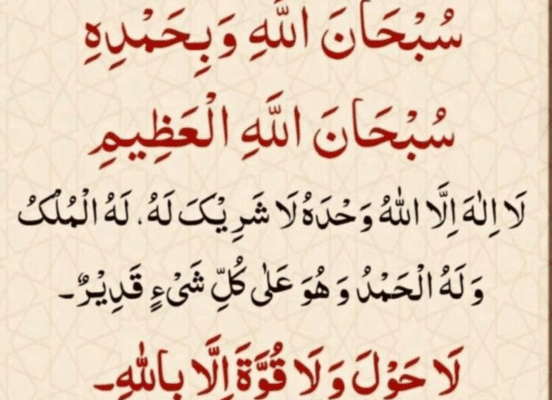 سُبْحَانَ اللَّهِ وَبِحَمْدِهِ
سُبْحَانَ اللَّهِ الْعَظِيمِ
لَا اِلٰهَ اِلَّا اللّٰهُ وَحْدَهٗ لَا شَرِيْكَ لَهٗ، لَهُ الْمُلْكُ
وَلَهُ الْحَمْدُ وَهُوَ عَلٰى كُلِّ شَىْءٍ قَدِيْرٌ۔
لَا حَوْلَ وَلَا قُوَّةَ اِلَّا بِاللّٰهِ۔